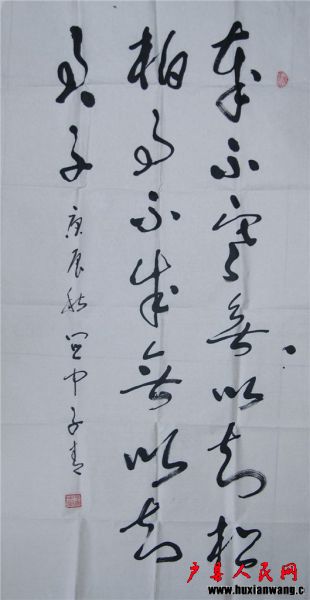 歲不寒無以知松
柏事不難無以知
君子 庚辰秋関中子青
户县人民网
www.huxianwang.c